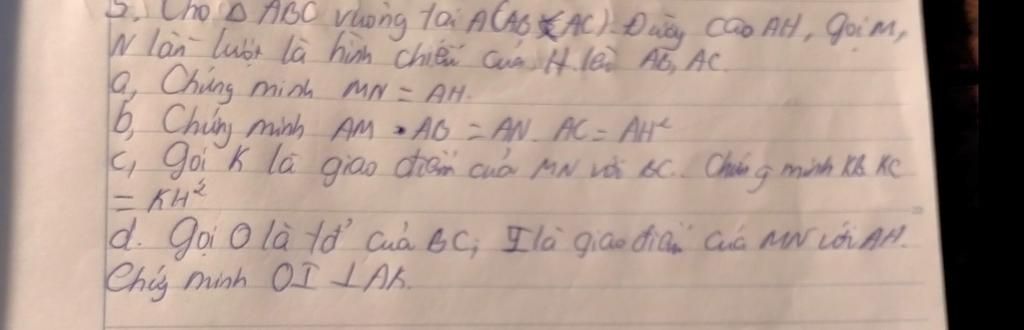 5. Cho Δ ABC vuông tại A (AB < AC). Đường cao AH, gọi M,
N lần lượt là hình chiếu của H lên AB, AC
a, Chứng minh MN = AH.
b, Chứng minh AM . AB = AN . AC = AH²
c, gọi K là giao điểm của MN với BC. Chứng minh KB KC
= KH²
d. Gọi O là tđ của BC, I là giao điểm của MN với AH.
Chứng minh OI ⊥ AK.